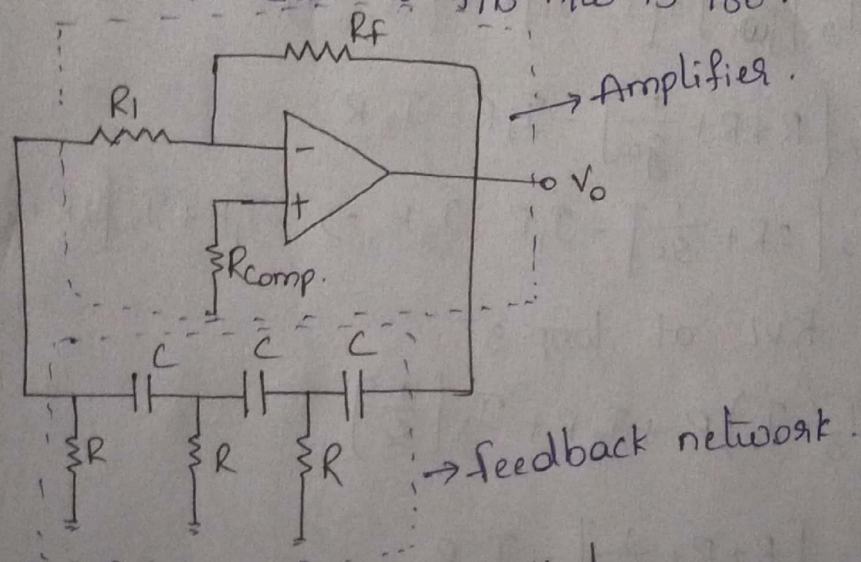 Rf
R1
→ Amplifier.
-
+
Vo
Rcomp.
C C C
R R R
→ feedback network.